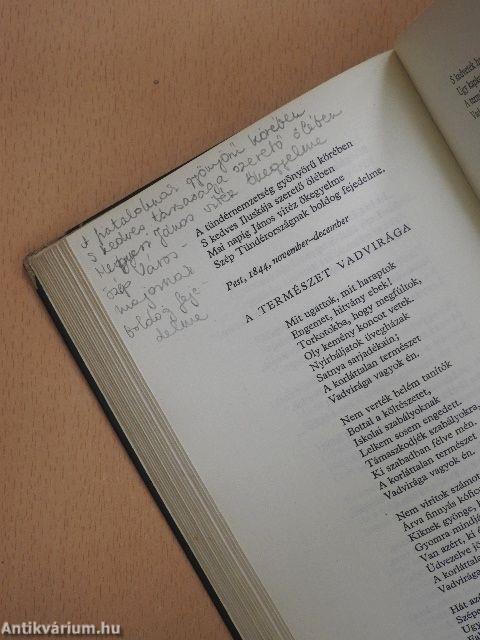 A fiataloknak gyönyörű körében
S kedves társasága szerető ölében
Hegyesi János vitéz őkegyelme
Szép Város-
majornak
boldog feje-
delme
A tündérnemzetség gyönyörű körében
S kedves Iluskája szerető ölében
Mai napig János vitéz őkegyelme
Szép Tündérországnak boldog fejedelme.
Pest, 1844, november–december
A TERMÉSZET VADVIRÁGA
Mit ugattok, mit haraptok
Engemet, hitvány ebek!
Torkotokba, hogy megfúltok,
Oly kemény koncot vetek.
Nyírbáljatok üvegházak
Satnya sarjadékain;
A korláttalan természet
Vadvirága vagyok én.
Nem verték belém tanítók
Bottal a költészetet,
Iskolai szabályoknak
Lelkem sosem engedett.
Támaszkodjék szabályokra,
Ki szabadban félve mén.
A korláttalan természet
Vadvirága vagyok én.
Nem virítok
Árva finnyás
Kiknek gyönge,
Gyomra
Van azért, ki
Üdvezelve
A korláttalan
Vadvirága
Hát
S kedvetek
Úgy
A